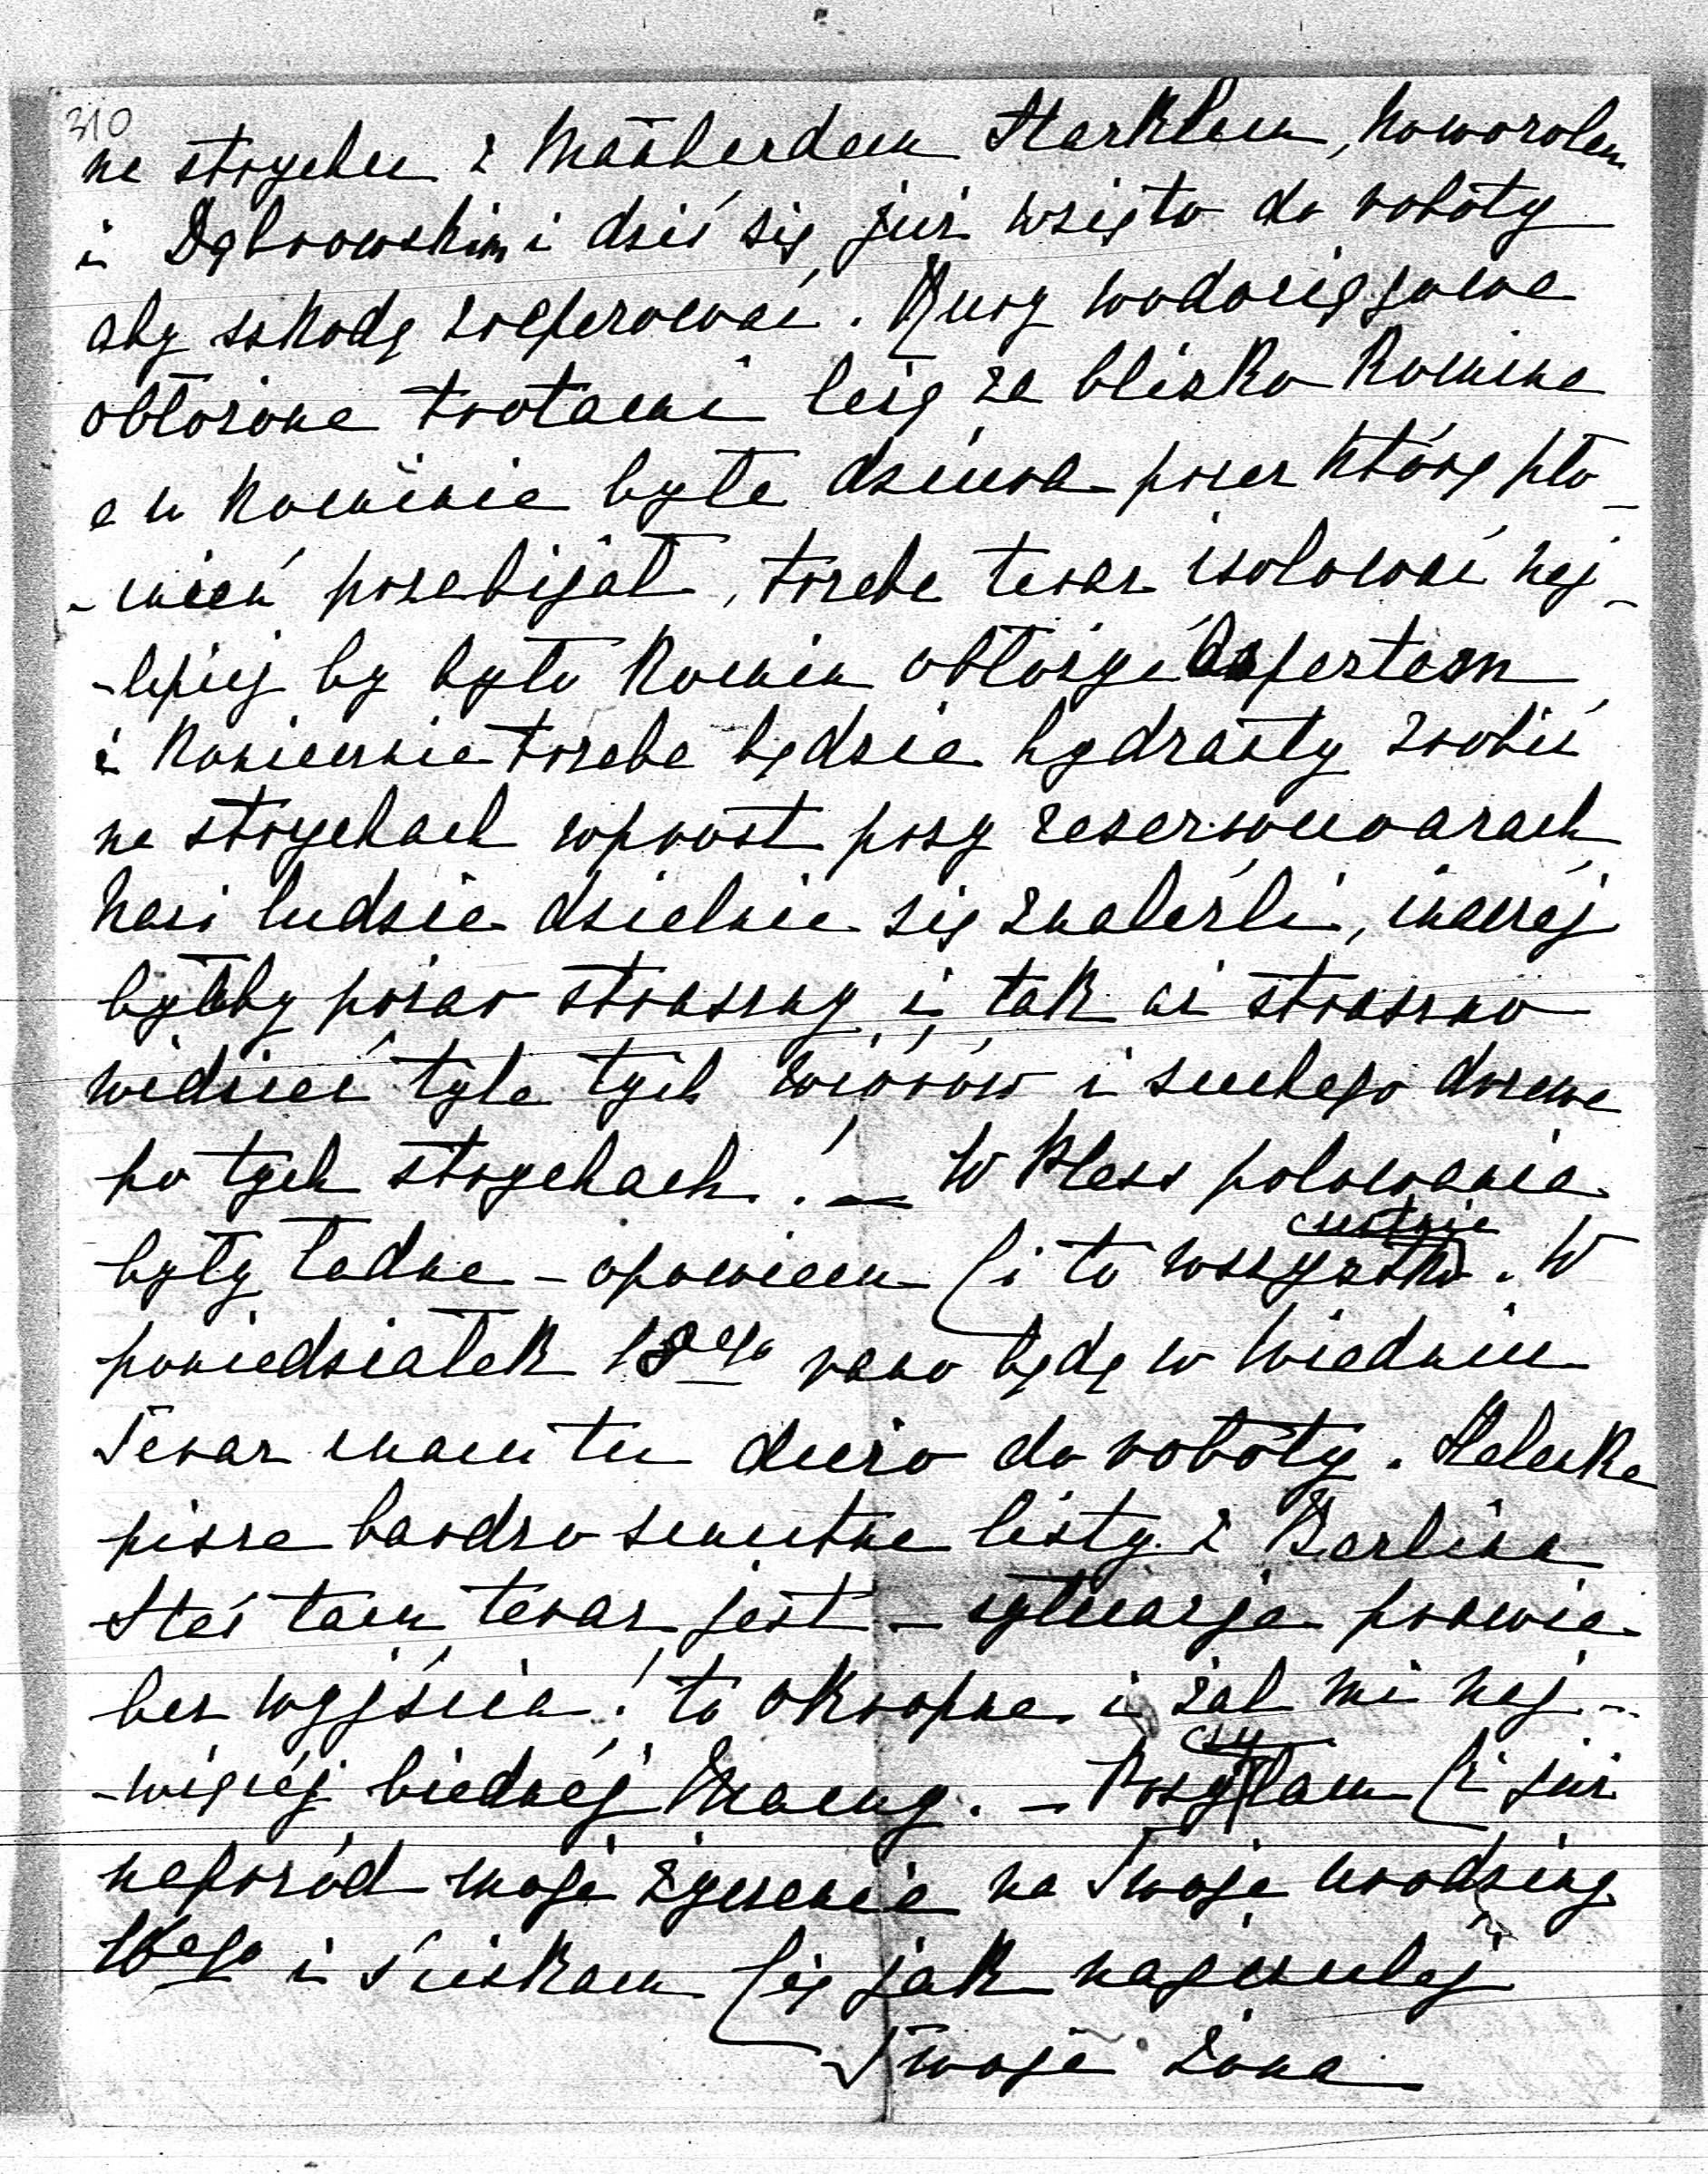 310
na strychu z Stärklem, Noworolem
i Dąbrowskim i dziś się już wzięto do roboty
aby szkodę zreperować. Rury wodociągowe
obłożone trotami leżą za blisko komina
a w kominie była dziura przez którą pło-
-mień przebijał, trzeba teraz isolować naj-
-lepiej by było komin obłożyć asfestem
i koniecznie trzeba będzie hydranty zrobić
na strychach wprost przy rezerwuarach
Nasi ludzie dzielnie się znaleźli, inaczéj
byłby pożar straszny i tak aż straszno
widzieć tyle tych wiórów i suchego drzewa
po tych strychach! — W Pless polowania
były ładne – opowiem Ci to wszystko ustnie. W
poniedziałek 18go rano będę w Wiedniu
Teraz mam tu dużo do roboty. Helenka
pisze bardzo smutne listy z Berlina
Staś tam teraz jest – sytuacja prawie
bez wyjścia! to okropne i żal mi naj-
-więcéj biednéj Mamy. – Posyłam Ci już
naprzód moje życzenia na Twoje urodziny
16go i ściskam Cię jak najczulej
Twoja żona